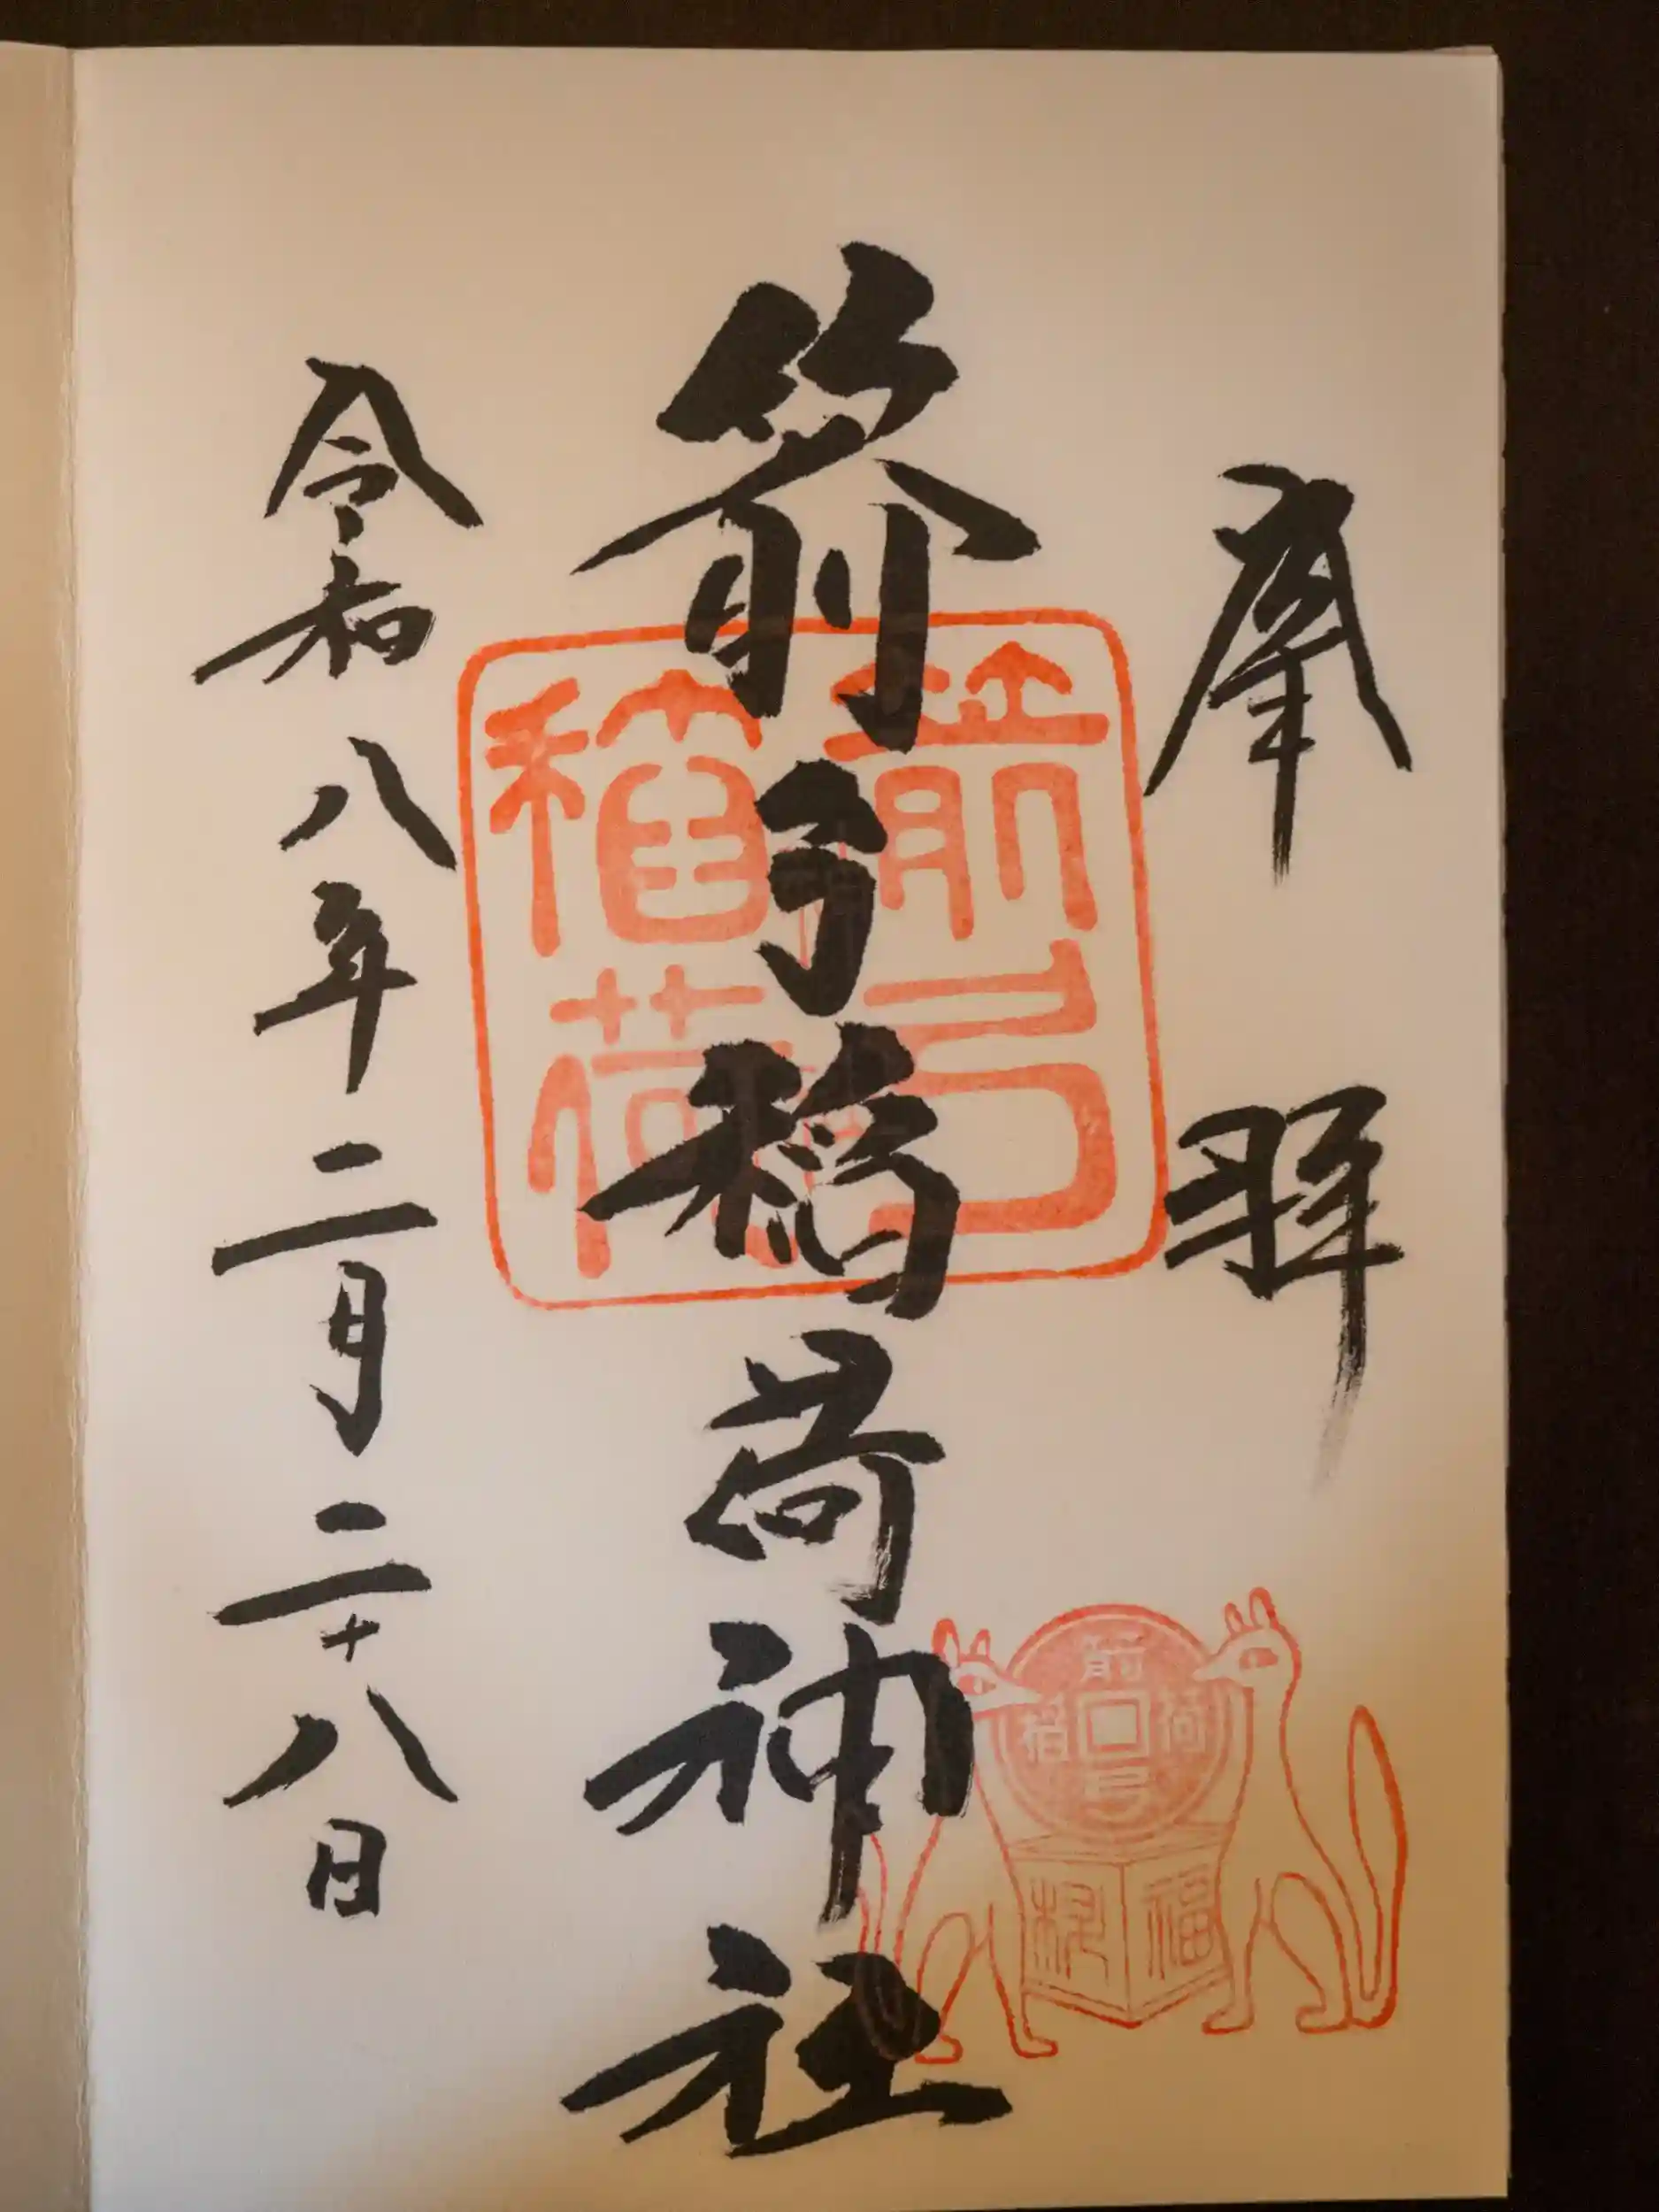 奉拝
箭弓稲荷神社
令和八年二月二十八日
箭弓
稲荷
箭弓稲荷
福